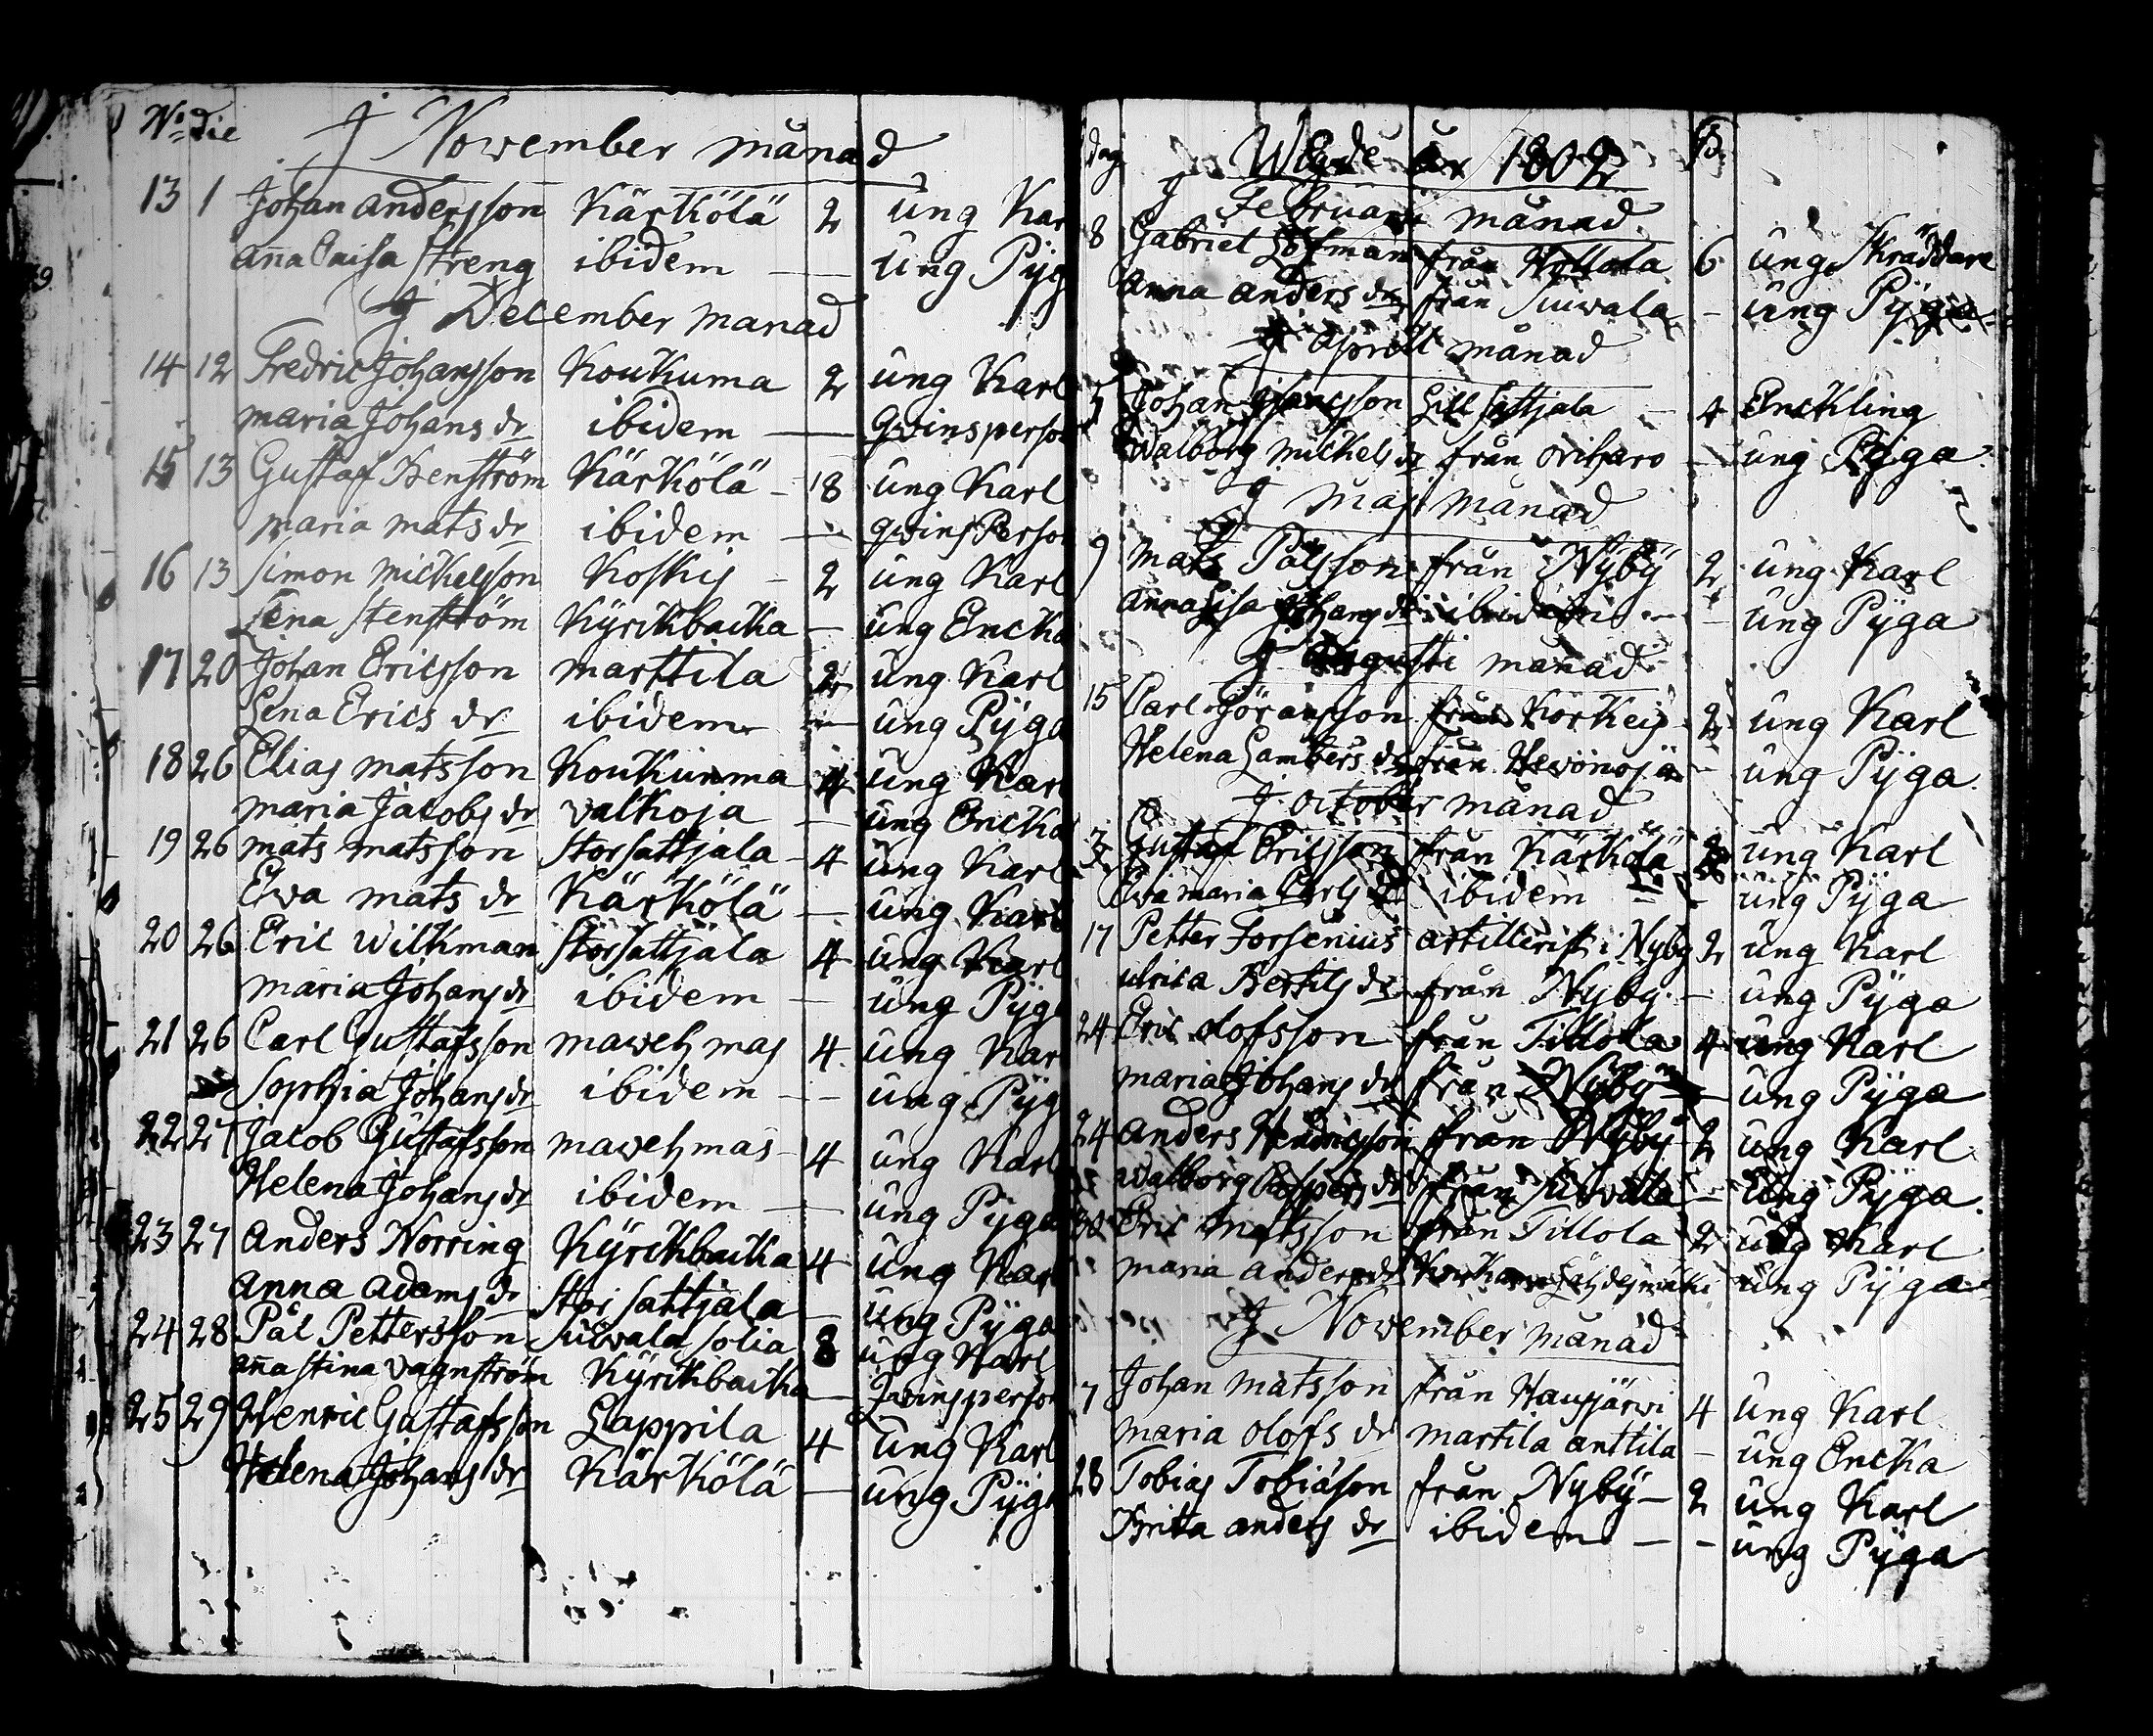 No die J November månad
13 1 Johan andersson Kärkölä 2 ung Kar
anna Caisa Streng ibidem — ung Pÿg
J December manad
14 12 Fredric Johansson Koukuma 2 ung Karl
maria Johans dr ibidem — qvinsperson
15 13 Gustaf Kenström Kärkölä - 18 ung Karl
maria mats dr ibidem — qvinsPerson
16 13 Simon Mickelsson Koskis - 2 ung Karl
Lena Stenström Kÿrckbacka — ung Encka
17 20 Johan Ericsson marttila 2 ung Karl
Lena Erics dr ibidem — ung Pÿga
18 26 Elias matsson Koukunma 4 ung Karl
maria Jacobs dr valkoja — ung Encka
19 26 mats matsson Storsattjala - 4 ung Karl
Ewa mats dr Kärkölä — ung Karl
20 26 Eric Wilkman Storsattjala 4 ung Karl
maria Johans dr ibidem — ung Pÿga
21 26 Carl Gustafsson mawehmas 4. ung Karl
Sophia Johans dr ibidem — ung Pÿg
22 27 Jacob Gustafsson mawehmas - 4 ung Karl
Helena Johans dr ibidem — ung Pÿga
23 27 Anders Norring Kÿrckbacka 4 ung Karl
Anna Adams dr Stor sattjala — ung Pÿga
24 28 Pål Pettersson Suwala solia 8 ung Karl
anna stina vagnström Kÿrckbacka — Qvinsperson
25 29 Henric Gustafsson Lappila 4 ung Karl
Helena Johans dr Kärkölä — ung Pÿga
dag Wigde år 1802
J Februari månad
8 Gabriel Löfman från Hollola 6 ung Skräddare
Anna anders dr från Suwala - ung Pÿga
J Aprill månad
Johan Lill sattjala — 4 Enckling
Walborg Mickels dr från oriharo — ung Pÿga
J Maji månad
9 mats Pålsson från Nÿbÿ 2 ung Karl
anna Lisa Johans dr ibidem — ung Pÿga
J Augusti manad
15 Carl Göransson från Korkeis 2 ung Karl
Helena Lambers dr från Hevonoja - ung Pÿga.
J october månad
3 Gustaf Ericsson från Kärkölä 2 ung Karl
Ewa maria Carls dr ibidem — ung Pÿga
17 Petter Forsenius artillerist i Nÿbÿ 2 ung Karl
ulrica Bertils dr från Nÿbÿ. — ung Pÿga
24 Eric olofsson från Tillola 4 ung Karl
maria Johans dr från Nÿbÿ — ung Pÿga
24 anders Hendricsson från Nÿbÿ 2 ung Karl
Walborg Caspers dr från Suwala — ung Pÿga.
Eric Matsson från Tillola 2 ung Karl
maria anders dr Lähdesmäki ung Pÿga
J November månad
7 Johan matsson från Hausjärwi 4 ung Karl
maria olofs dr martila anttila - ung Encka
28 Tobias Tobiason från Nÿbÿ — 2 ung Karl
Britta anders dr ibidem — - ung Pÿga